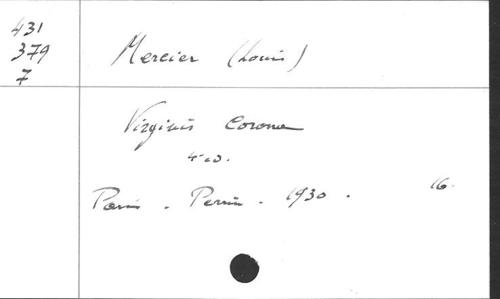 431
379
7
Mercier (Louis)
Virginis Coronæ
4 ed.
Paris . Perrin . 1930 . 16.